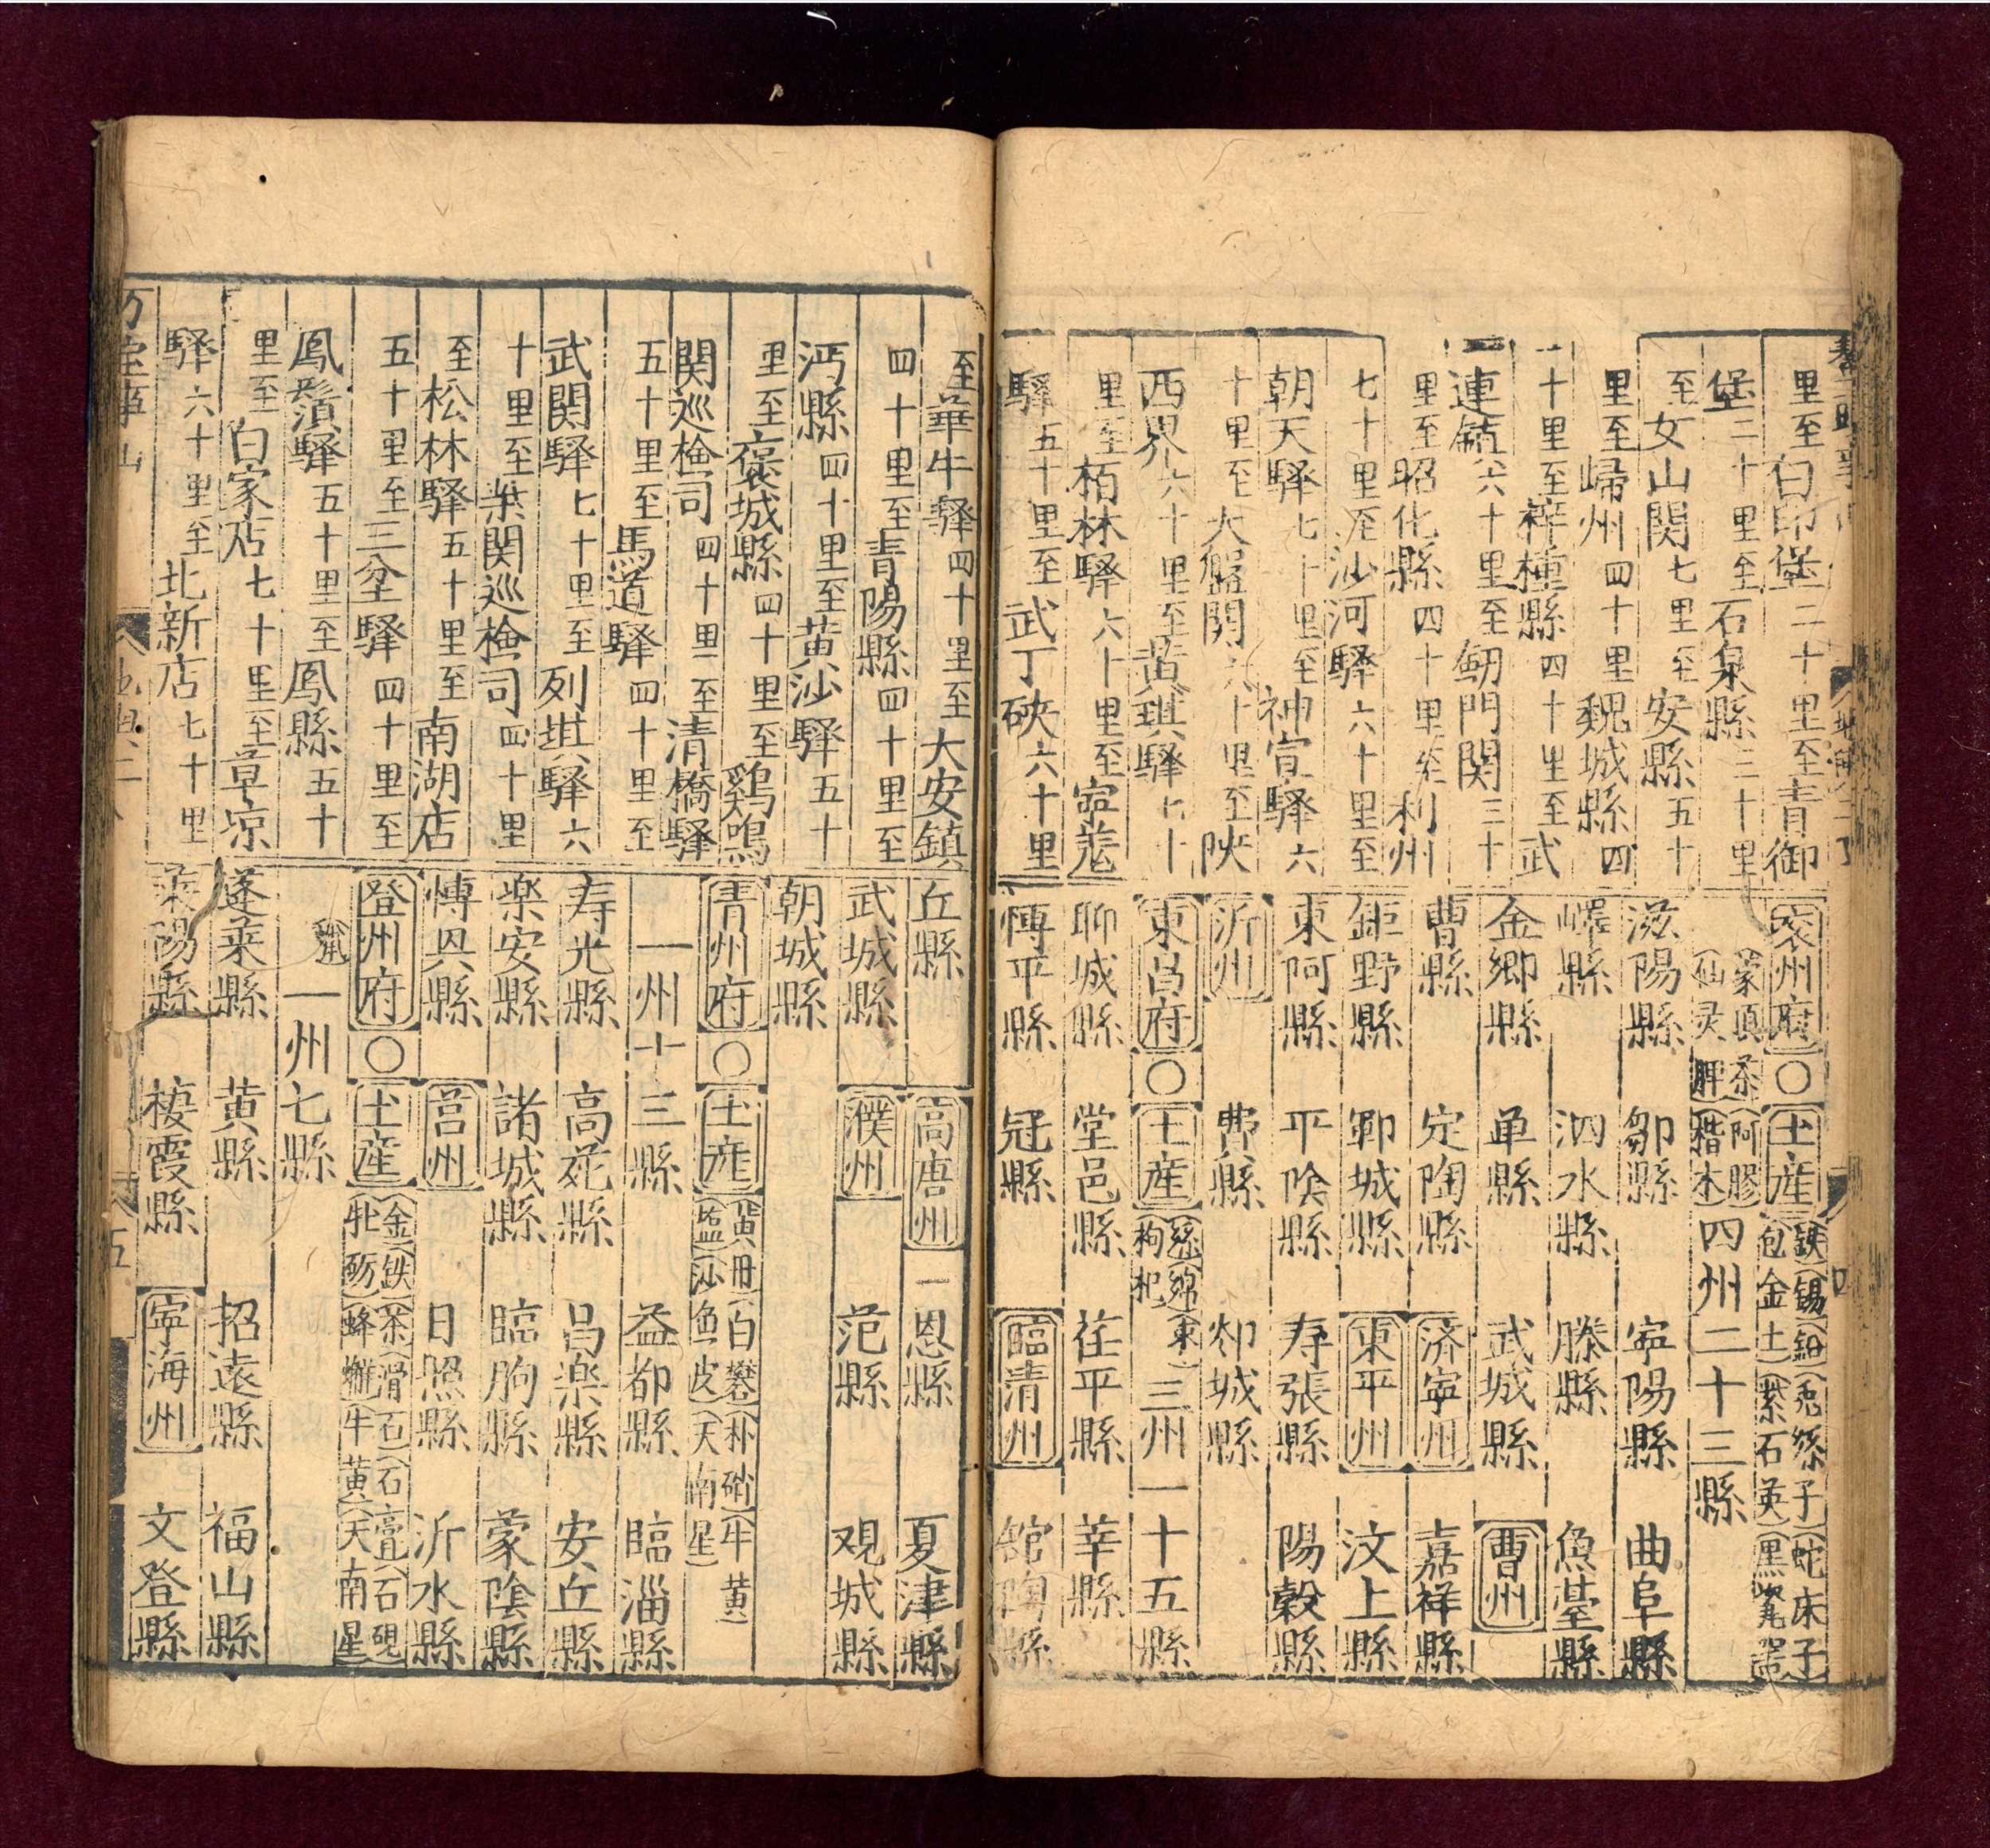 里至白印堡二十里至青御
堡二十里至石泉縣三十里
至女山関七里至安縣五十
里至歸州四十里魏城縣四
十里至梓橦縣四十里至武
連𨫼六十里至劒門関三十
里至昭化縣四十里至利州
七十里至沙河驛六十里至
朝天驛七十里至神宣驛六
十里至大盤関六十里至陜
西界六十里至黃琪驛七十
里至栢林驛六十里至寧羗
驛五十里至武丁硤六十里
兖州府〇土産鉄錫鉛兎絲子蛇床子
包金土紫石英黒瓷器
蒙頂茶阿膠
仙灵脾楷木四州二十三縣
滋陽縣 鄒縣 寧陽縣 曲阜縣
嶧縣 泗水縣 滕縣 魚䑓縣
金鄉縣 單縣 武城縣 曹州
曹縣 定陶縣 済寧州 嘉祥縣
鉅野縣 鄆城縣 東平州 汶上縣
東阿縣 平隂縣 寿張縣 陽穀縣
沂州 費縣 郯城縣
東昌府〇土産絲綿棗
枸杞三州一十五縣
聊城縣 堂邑縣 茌平縣 莘縣
博平縣 冠縣 臨清州 舘陶縣
至華牛驛四十里至大安鎮
四十里至青陽縣四十里至
沔縣四十里至黃沙驛五十
里至褒城縣四十里至鷄鳴
関巡檢司四十里至清橋驛
五十里至馬道驛四十里至
武関驛七十里至列琪驛六
十里至柴関巡檢司四十里
至松林驛五十里至南湖店
五十里至三坌驛四十里至
鳳鬚驛五十里至鳳縣五十
里至白家店七十里至草凉
驛六十里至北新店七十里
丘縣 高唐州 恩縣 夏津縣
武城縣 濮州 范縣 观城縣
朝城縣
青州府〇土産黃丹白礬朴硝牛黃
塩沙魚皮天南星
一州十三縣 益都縣 臨淄縣
寿光縣 高苑縣 昌楽縣 安丘縣
楽安縣 諸城縣 臨朐縣 蒙隂縣
博興縣 莒州 日照縣 沂水縣
登州府〇土産金鉄茶滑石石膏石硯
牡砺蜂牛黃天南星
一州七縣
蓬萊縣 黃縣 招遠縣 福山縣
萊陽縣 棲霞縣 寧海州 文登縣